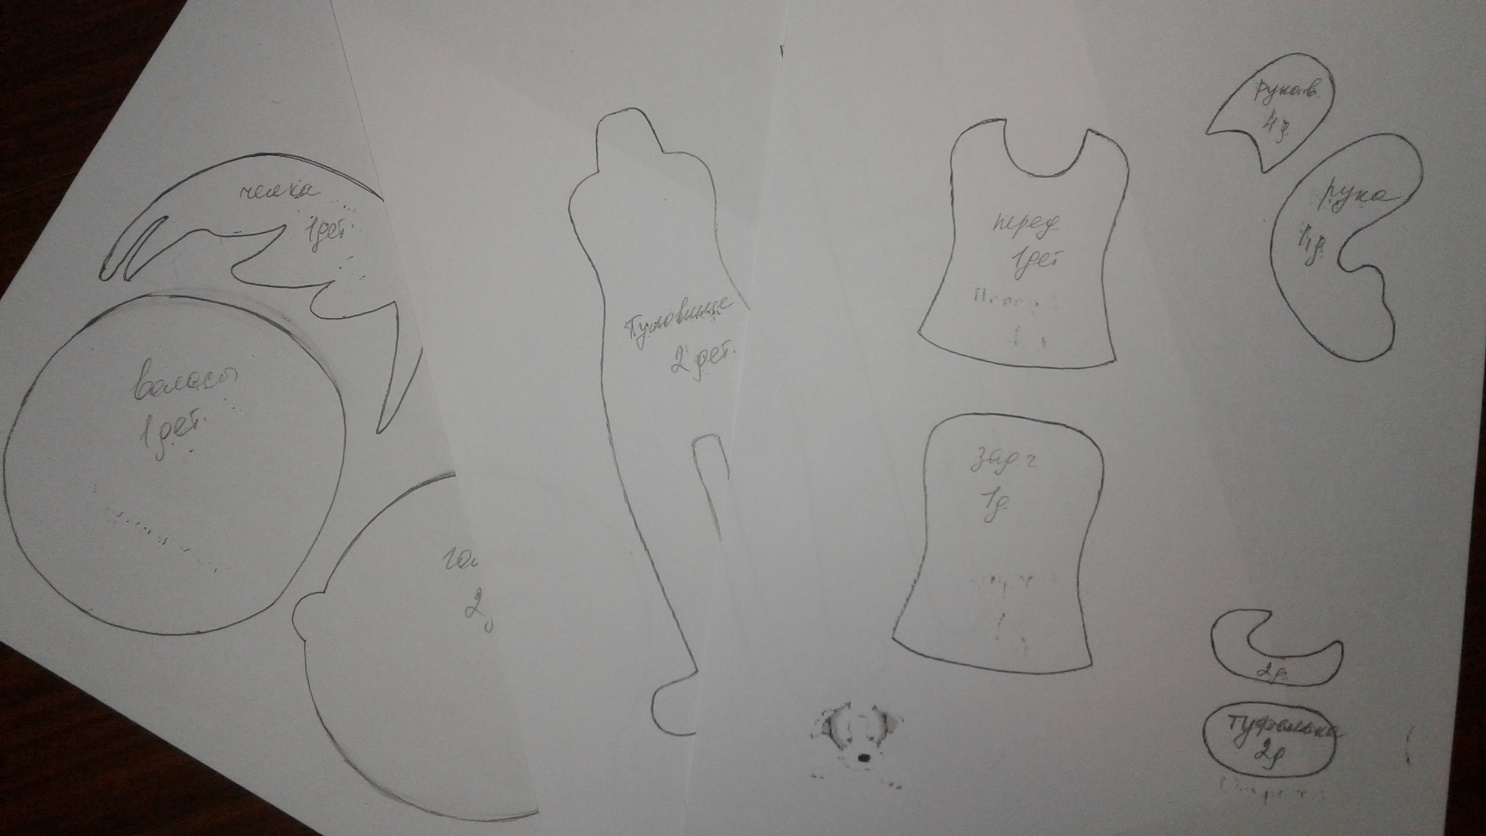 челка
1дет.
волосы
1дет.
2
Туловище
2 дет.
перед
1дет
зад
1д.
рукав
4д.
рука
4д.
2д.
туфелька
2д